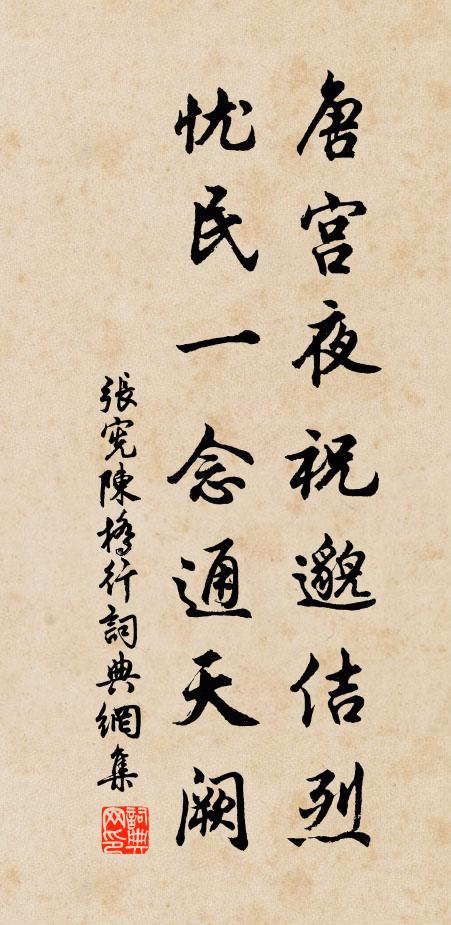 唐宮夜祝邈佶烈
忧民一念通天阙
張宪陳橋行詞典網集
詞典网印